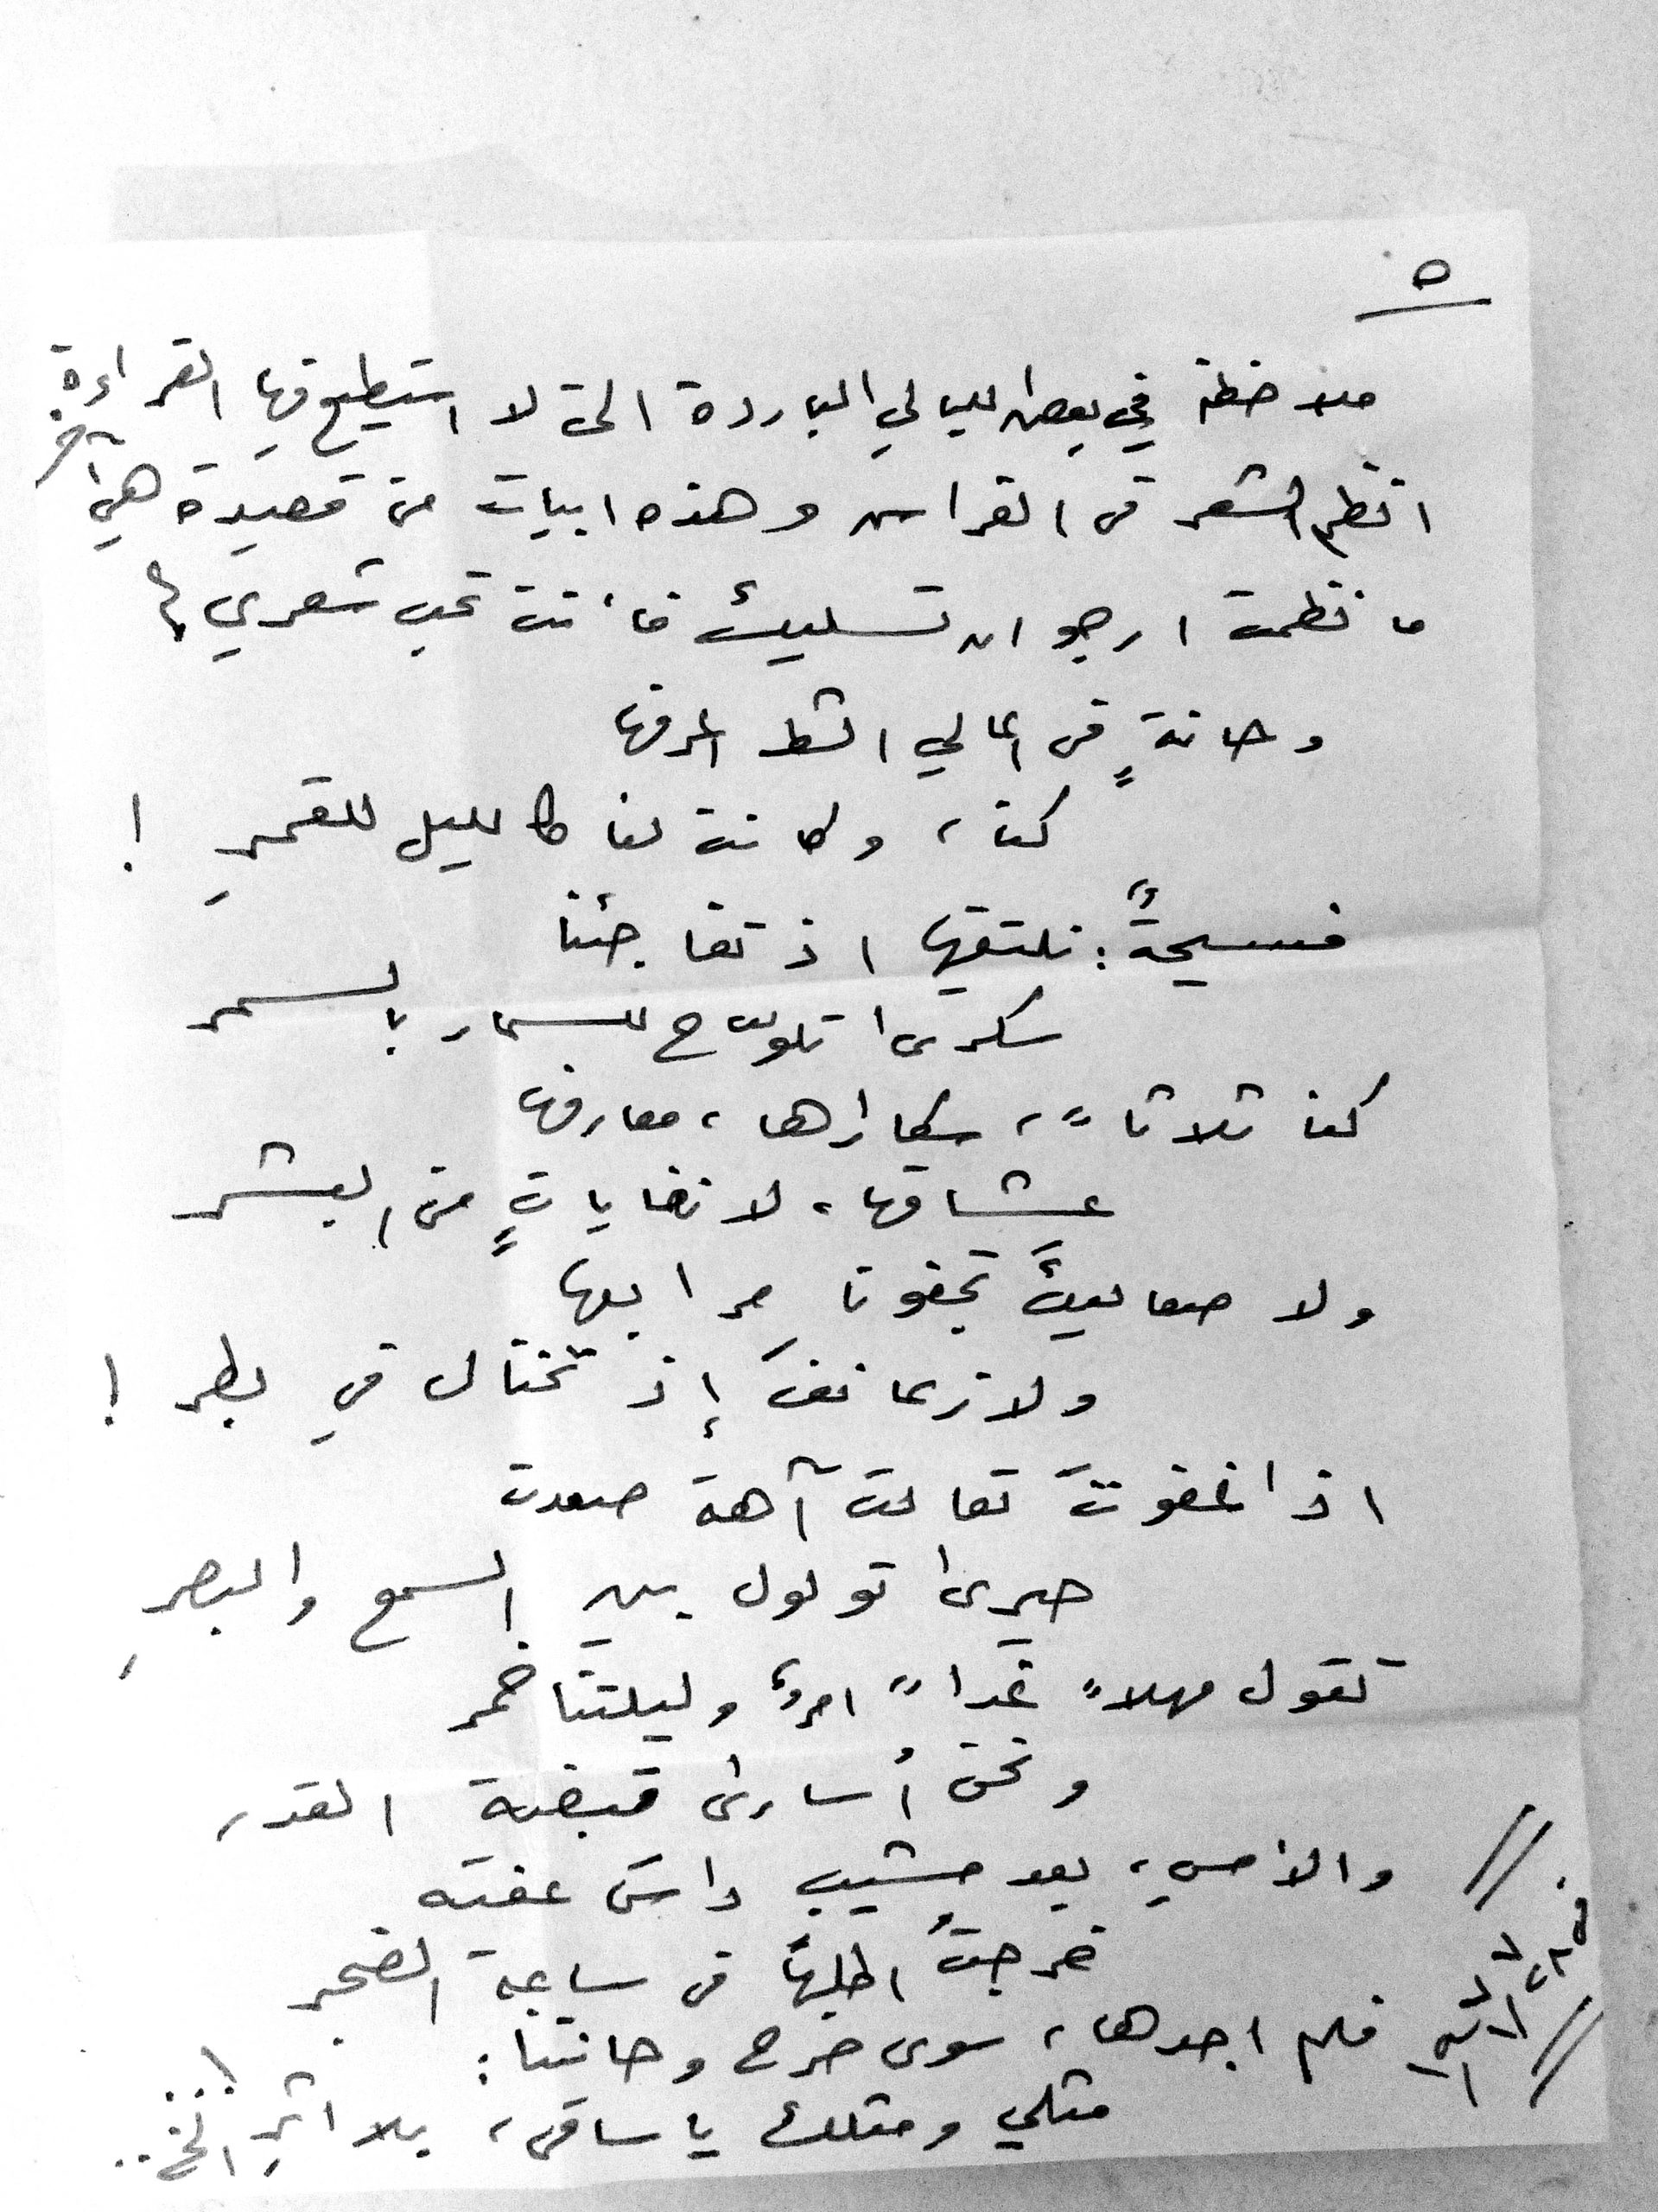 ٥
ملاحظة في بعض الليالي الباردة التي لا استطيع فيها القراءة
انظم الشعر في الفراش وهذه ابيات من قصيدة هي آخر
ما نظمت ارجو ان تسليك فأنت تحب شعري
وحانةٍ في اعالي الشط اعرفها
كنا، وكانت لنا كالليل للقمرِ !
فسيحةً : نلتقيها اذ تفاجئنا
سكرى تلوّح للسمار بالسمر
كنا ثلاثاً، سكاراها، معارفها
عشاقها، لا نفاياتٍ من البشر
ولا صعاليكَ تجفونا مرابعها
ولا زعانفَ إذ تختال في بطر !
اذا غفوتَ تعالت آهة صعدت
حيرى تولول بين السمع والبصرِ
تقول مهلاً غداً امرٌ وليلتنا خمر
ونحن أسارى قبضة القدر
// والأمسِ، بعد مشيب داس عفته
خرجتُ اطلبها في ساعة الضجر
// فلم اجدها، سوى جرح وحانتنا :
مثلي ومثلك يا ساقي، بلا اثرِ !.. الخ..